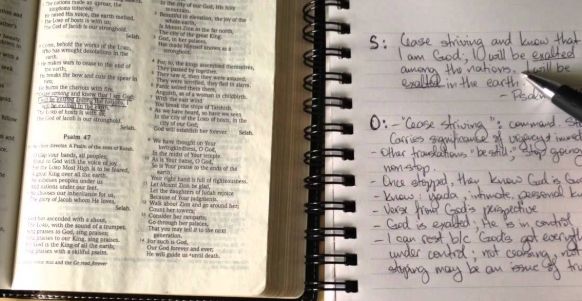 The nations made an uproar, the
kingdoms tottered;
He raised His voice, the earth melted.
The LORD of hosts is with us;
The God of Jacob is our stronghold.
Selah.
Come, behold the works of the LORD,
Who has wrought desolations in the
earth.
He makes wars to cease to the end of
the earth;
He breaks the bow and cuts the spear in
two;
He burns the chariots with fire.
striving and know that I am God;
I will be exalted among the nations, I
will be exalted in the earth.
The LORD of hosts is with us;
The God of Jacob is our stronghold.
Selah.
Psalm 47
director. A Psalm of the sons of Korah.
clap your hands, all peoples;
to God with the voice of joy.
the LORD Most High is to be feared,
A great King over all the earth.
He subdues peoples under us
And nations under our feet.
He chooses our inheritance for us,
The glory of Jacob whom He loves.
Selah.
God has ascended with a shout,
The LORD, with the sound of a trumpet.
praises to God, sing praises;
praises to our King, sing praises.
God is the King of all the earth;
praises with a skillful psalm.
In the city of our God, His holy
mountain.
Beautiful in elevation, the joy of the
whole earth,
Is Mount Zion in the far north,
The city of the great King.
God, in her palaces,
Has made Himself known as a
stronghold.
For, lo, the kings assembled themselves,
They passed by together.
They saw it, then they were amazed;
They were terrified, they fled in alarm.
Panic seized them there,
Anguish, as of a woman in childbirth.
With the east wind
You break the ships of Tarshish.
As we have heard, so have we seen
In the city of the LORD of hosts, in the
city of our God;
God will establish her forever. Selah.
We have thought on Your
lovingkindness, O God,
In the midst of Your temple.
As is Your name, O God,
So is Your praise to the ends of the
earth;
Your right hand is full of righteousness.
Let Mount Zion be glad,
Let the daughters of Judah rejoice
Because of Your judgments.
Walk about Zion and go around her;
Count her towers;
Consider her ramparts;
Go through her palaces,
That you may tell it to the next
generation.
For such is God,
Our God forever and ever;
He will guide us until death.
S: Cease striving and know that
I am God; I will be exalted
among the nations. I will be
exalted in the earth.
O: - "Cease striving"; command.
Carries significance of
- Other translations, "be still." Stop going
non-stop.
- Once stopped, they know God is
- Know: yada, intimate, personal
- Verse from God's perspective
- God is exalted, He is in control
- I can rest b/c God's got everything
under control; not ceasing, not
stopping may be an issue of